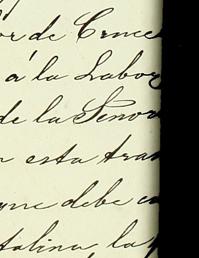 or de Cruce
á la Labor
de la Señor
esta tra
que debe
talina, la